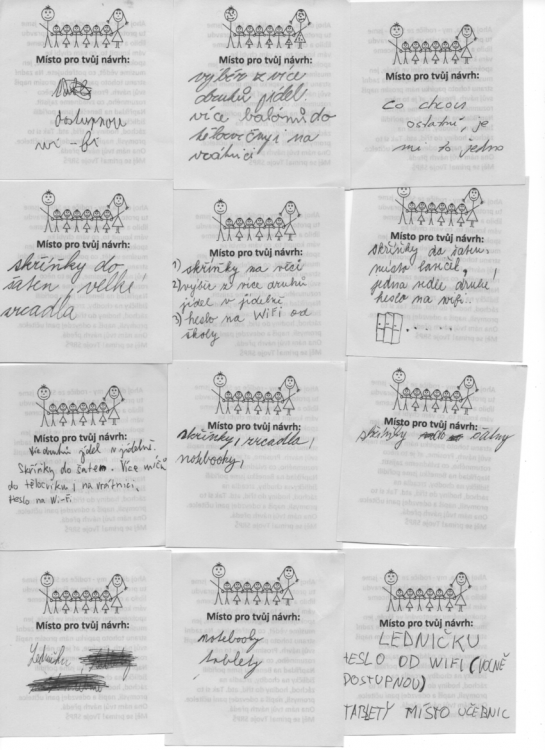 Místo pro tvůj návrh:
dostupnou
wi-fi
Místo pro tvůj návrh:
výběr z více
druhů jídel.
více balónů do
tělocvičny i na
vrátnici
Místo pro tvůj návrh:
co chcou
ostatní, je
mi to jedno
Místo pro tvůj návrh:
skříňky do
šaten, velké
zrcadla
Místo pro tvůj návrh:
1) skříňky na věci
2) výběr z více druhů
jídel v jídelně
3) heslo na WiFi od
školy
Místo pro tvůj návrh:
skříňky do šaten.
místo lavic,
jedna vedle druhé!
heslo na wifi..
Místo pro tvůj návrh:
Více druhů jídel v jídelně.
Skříňky do šaten. Více míčů
do tělocviku, i na vrátnici,
Heslo na Wi-Fi
Místo pro tvůj návrh:
skříňky, zrcadla,
notebooky,
Místo pro tvůj návrh:
skříňky
Místo pro tvůj návrh:
Ledničku
Místo pro tvůj návrh:
notebooky
tablety
Místo pro tvůj návrh:
LEDNIČKU
HESLO OD WIFI (VOLNĚ
DOSTUPNOU)
TABLETY MÍSTO UČEBNIC